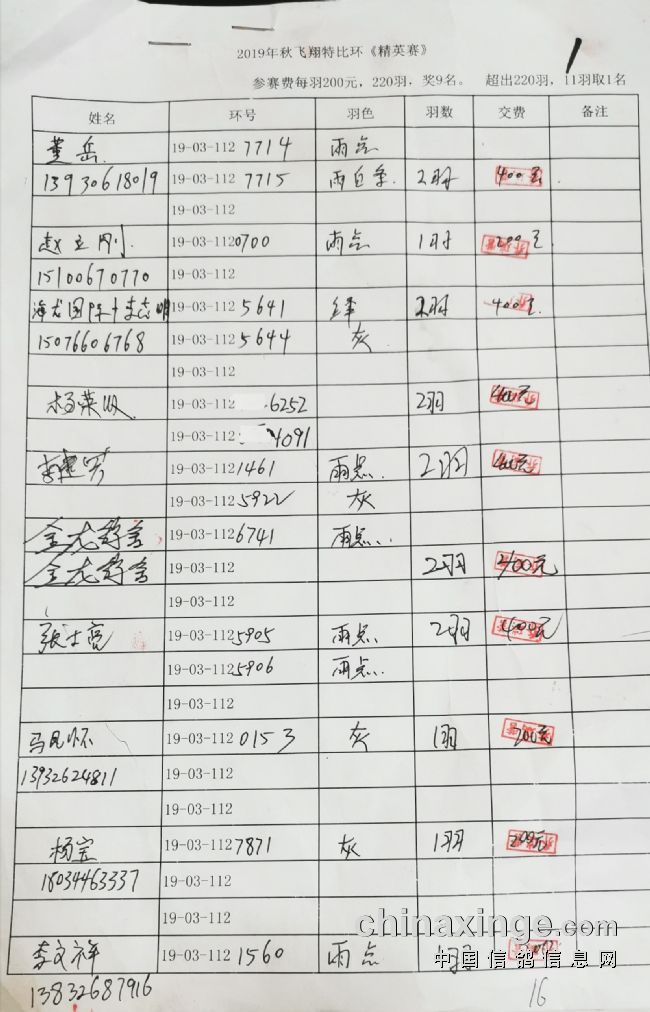 2019年秋飞翔特比环《精英赛》
参赛费每羽200元，220羽，奖9名。 超出220羽，11羽取1名
姓名 环号 羽色 羽数 交费 备注
董岳 19-03-112 7714 雨点
13930618019 19-03-112 7715 雨白条 2羽 400元
19-03-112
赵立刚 19-03-112 0700 雨点 1羽 200元
15100670770 19-03-112
海龙国际+李志明 19-03-112 5641 绛 2羽 400元
15076606768 19-03-112 5644 灰
19-03-112
杨荣 19-03-112 6252 2羽 400元
19-03-112 4091
李建 19-03-112 1461 雨点 2羽 400元
19-03-112 5922 灰
金龙鸽舍 19-03-112 6741 雨点
金龙鸽舍 19-03-112 2羽 400元
19-03-112
张士亮 19-03-112 5905 雨点 2羽 400元
19-03-112 5906 雨点
19-03-112
马凤怀 19-03-112 0153 灰 1羽 200元
13932624811 19-03-112
19-03-112
杨宝 19-03-112 7871 灰 1羽 200元
18034463337 19-03-112
19-03-112
李文祥 19-03-112 1560 雨点 1羽
13832687916
16
chinaxinge.com
中国信鸽信息网